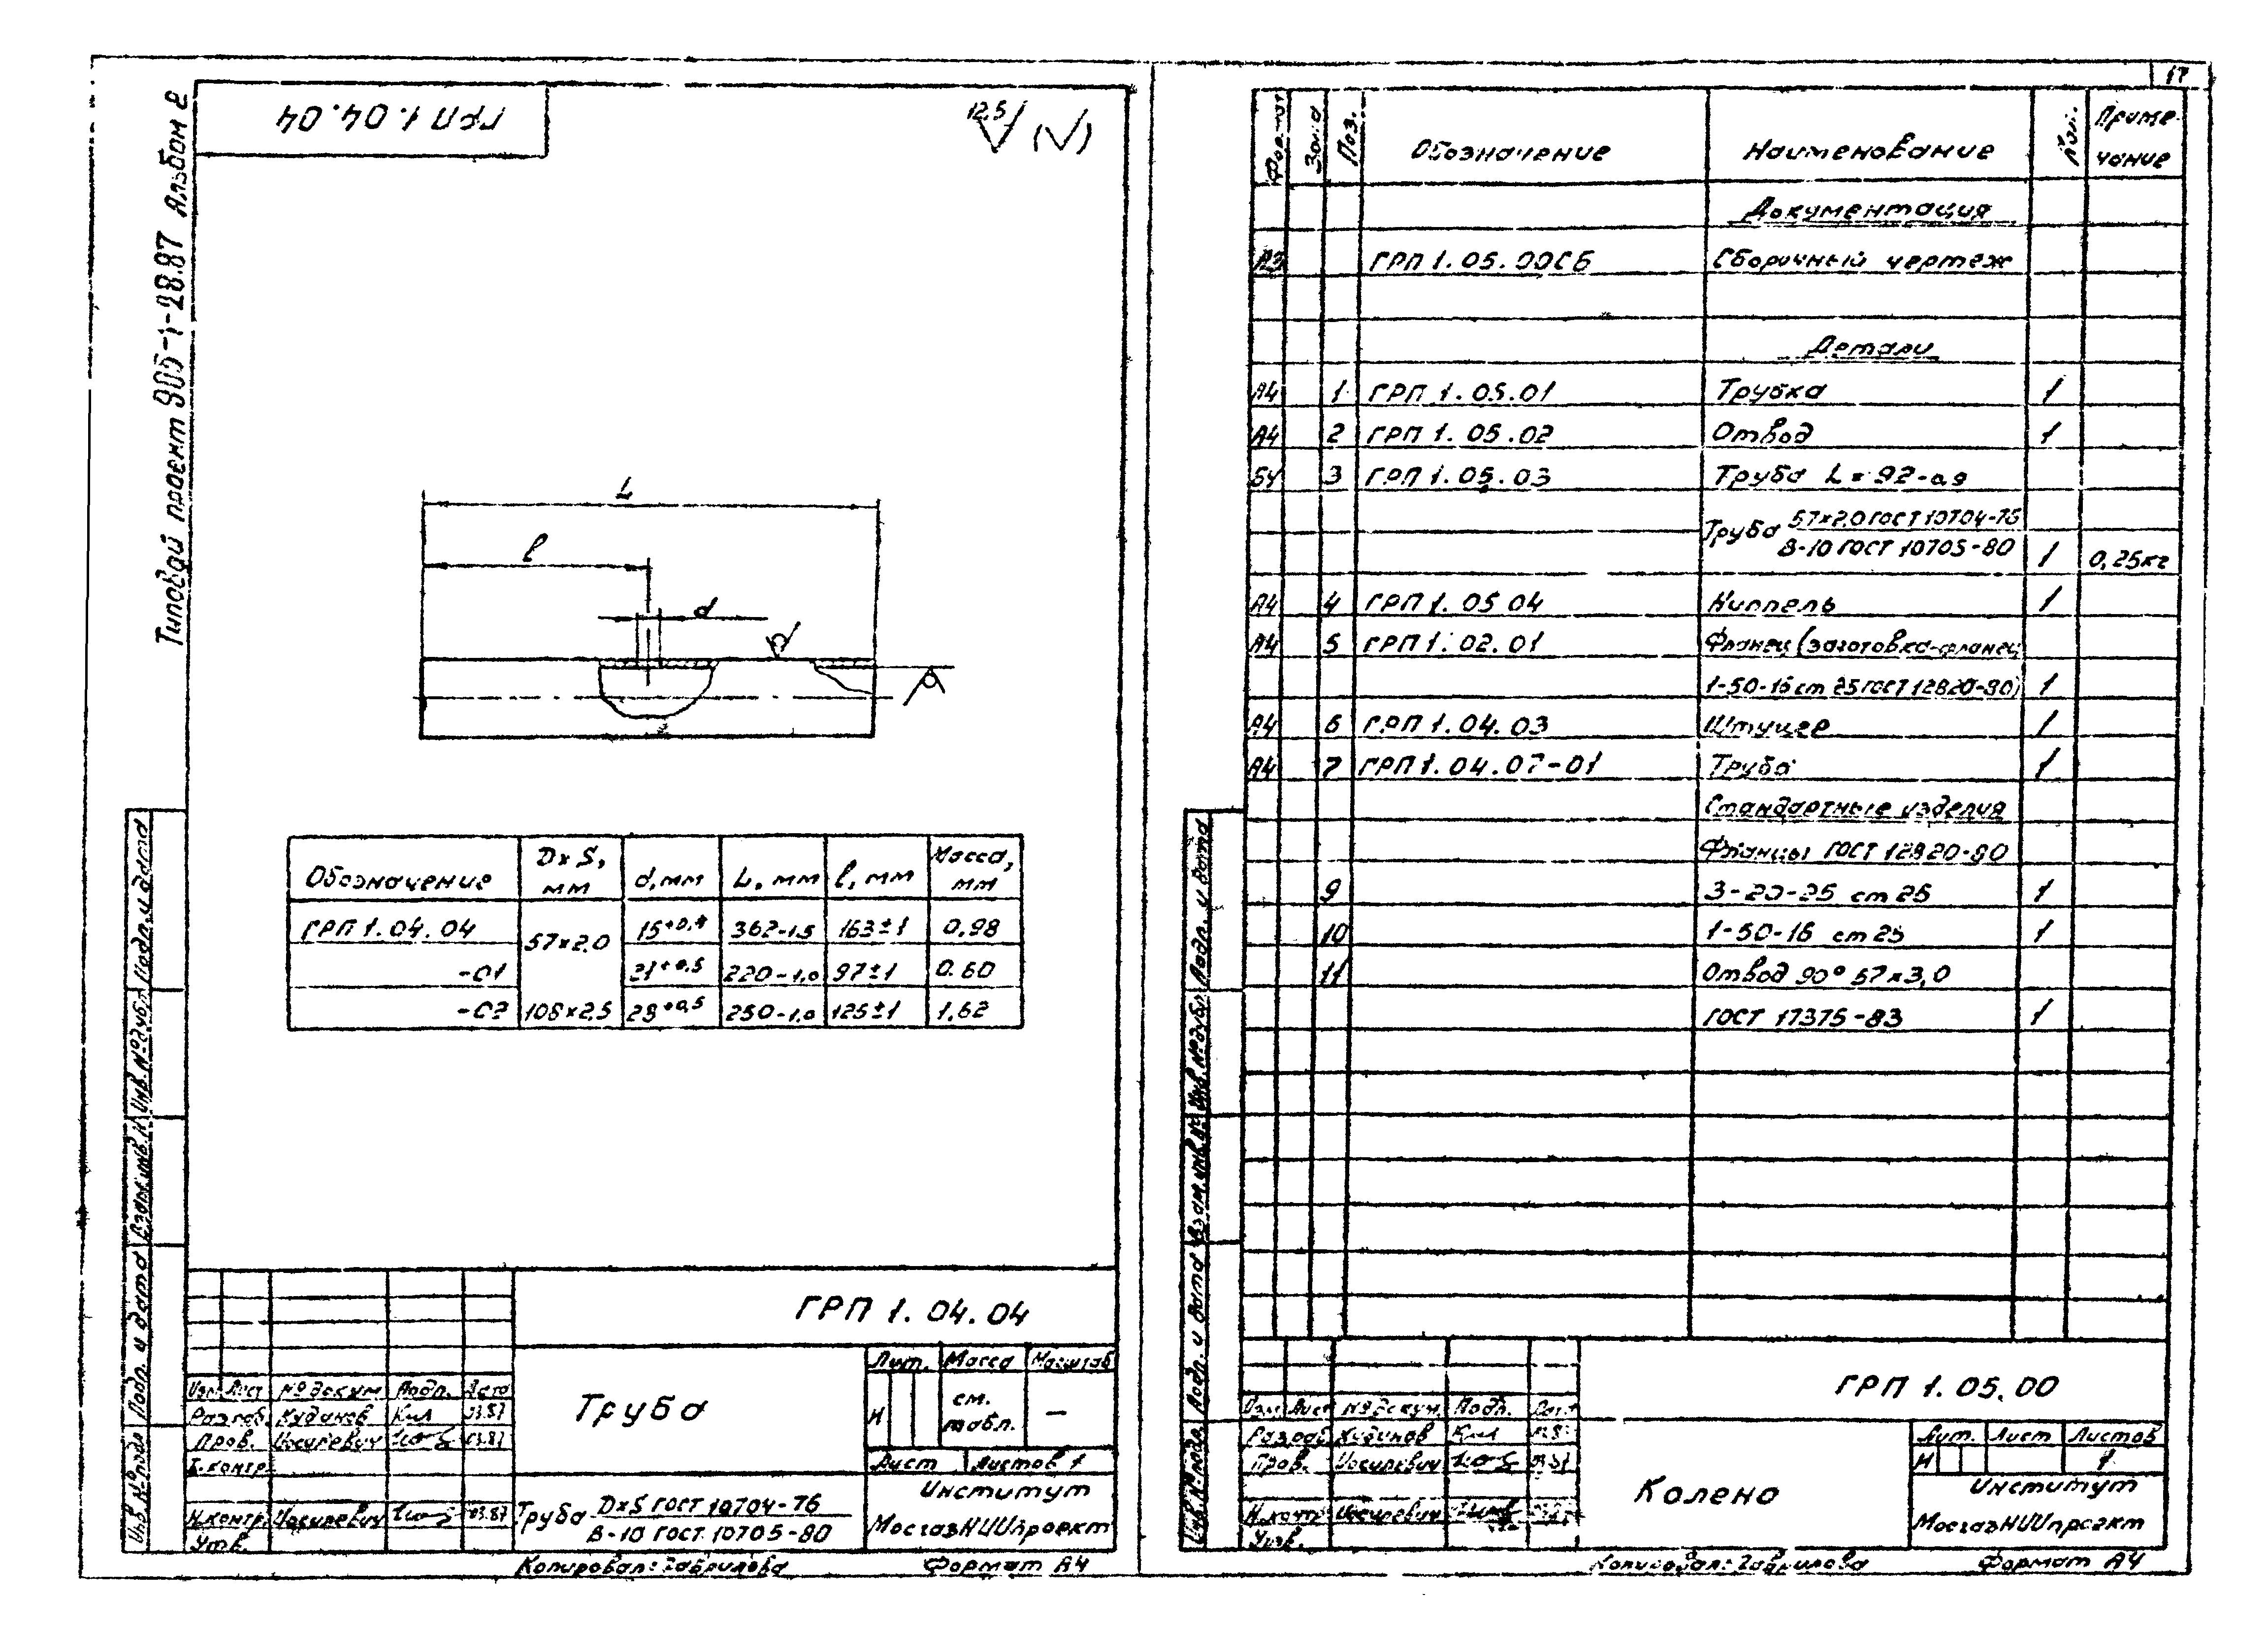 Типовой проект 905-1-28.87 Альбом 2
ГРП 1.04.04
12,5 (√)
L
l
d
Обозначение | D×S, мм | d, мм | L, мм | l, мм | Масса, мм
ГРП 1.04.04 | 57×2.0 | 15+0,4 | 362-1,5 | 163±1 | 0.98
-01 | 21+0,5 | 220-1,0 | 97±1 | 0.60
-02 | 108×2,5 | 28+0,5 | 250-1,0 | 125±1 | 1,62
Инв. № подл. Подп. и дата Взам. инв. № Инв. № дубл. Подп. и дата
ГРП 1.04.04
Труба
Лит. Масса Масштаб
И см. табл. —
Лист Листов 1
Изм Лист № докум Подп. Дата
Разраб. 03.87
Пров. Иосилевич 03.87
Т.контр.
Н.контр. Иосилевич 03.87
Утв.
Труба D×S ГОСТ 10704-76
В-10 ГОСТ 10705-80
Институт
МосгазНИИпроект
Копировал: Гаврилова Формат А4
17
Формат Зона Поз. Обозначение Наименование Кол. Примечание
Документация
А3 ГРП 1.05.00СБ Сборочный чертеж
Детали
А4 1 ГРП 1.05.01 Трубка 1
А4 2 ГРП 1.05.02 Отвод 1
БЧ 3 ГРП 1.05.03 Труба L=92-0,9
Труба 57×2.0 ГОСТ 10704-76
В-10 ГОСТ 10705-80 1 0,25кг
А4 4 ГРП 1.05 04 Ниппель 1
А4 5 ГРП 1.02.01 Фланец (заготовка-фланец
1-50-16 ст 25 ГОСТ 12820-80) 1
А4 6 ГРП 1.04.03 Штуцер 1
А4 7 ГРП 1.04.07-01 Труба 1
Стандартные изделия
Фланцы ГОСТ 12820-80
9 3-20-25 ст 25 1
10 1-50-16 ст 25 1
11 Отвод 90° 57×3,0
ГОСТ 17375-83 1
Инв. № подл. Подп. и дата Взам. инв. № Инв. № дубл. Подп. и дата
ГРП 1.05.00
Изм Лист № докум. Подп. Дата
Разраб.
Пров. Иосилевич
Н.контр. Иосилевич
Утв.
Колено
Лит. Лист Листов
И 1
Институт
МосгазНИИпроект
Копировал: Гаврилова Формат А4